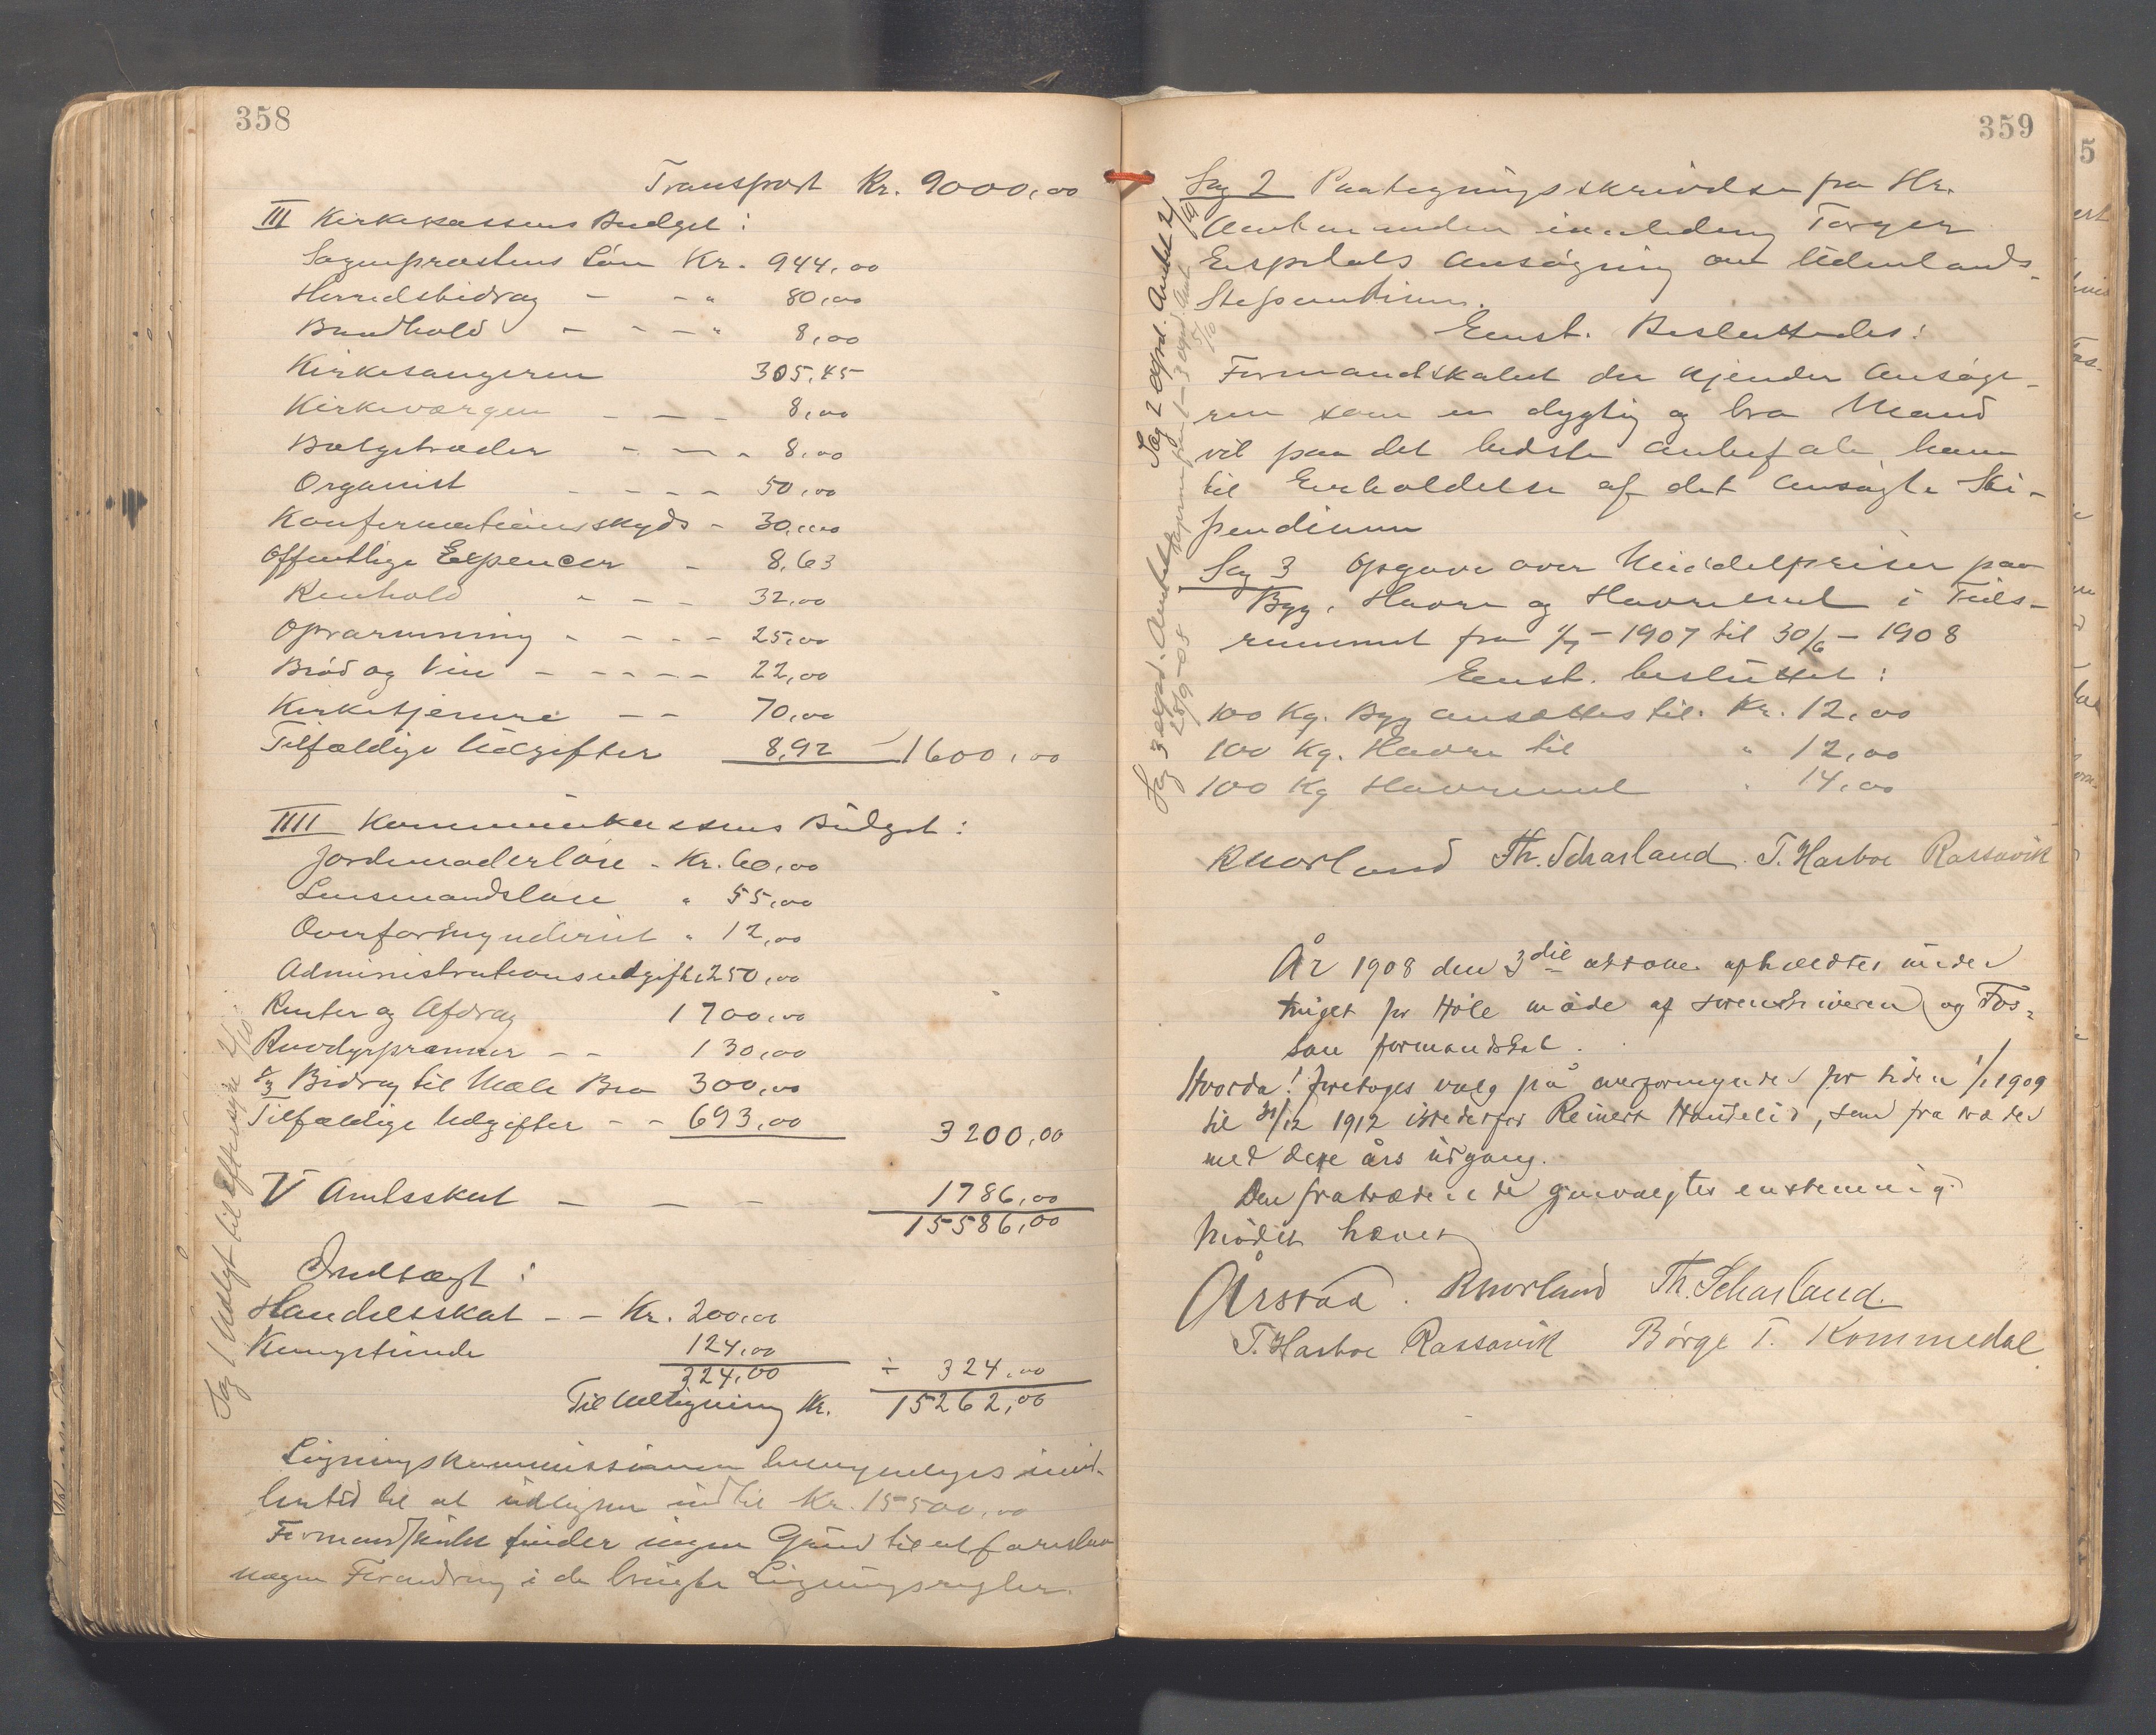 358
Transport Kr. 9000,00
III Kirkekassens Budget:
Sogneprestens Løn Kr. 944,00
Herredsbidrag - - " 80,00
Brudhold - - - " 8,00
Kirkesangeren 305,45
Kirkeværgen - - - 8,00
Bælgetræder - - - 8,00
Organist - - - - 50,00
Konfirmationsskyds - 30,00
Offentlige Expencer - 8,63
Renhold - - - 32,00
Opvarmning - - - - 25,00
Brød og Vin - - - - - 22,00
Kirketjenere - - 70,00
Tilfældige Udgifter 8,92 1600,00
IIII Kommunekassens Budget:
Jordemoderløn - Kr. 60,00
Lensmandsløn " 55,00
Overformynderiet " 12,00
Administrationsudgifter 1250,00
Renter og Afdrag 1700,00
Rovdyrpræmier - - 130,00
Bidrag til Mæle Bro 300,00
Tilfældige Udgifter - - 693,00 3200,00
V Amtsskat - - - 1786,00
15586,00
Indtægt:
Handelsskat - - Kr. 200,00
Kongetiende 124,00
324,00 ÷ 324,00
Til Udligning Kr. 15262,00
Ligningskommissionen bemyndiges imid-
lertid til at udligne indtil Kr. 15500,00
Formandskabet finder ingen Grund til at foreslaa
nogen Forandring i de brugte Ligningsregler.
Sag 1 Udlagt til Eftersyn 2/10
359
Sag 2 Paategningsskrivelse fra Hr.
Amtmanden Torger
Espedals Ansøgning om Udenlands-
Stipendium.
Enst. Besluttedes:
Formandskabet der kjender Ansøge-
ren som en dygtig og bra Mand
vil paa det bedste anbefale ham
til Erholdelse af det ansøgte Sti-
pendium
Sag 3 Opgave over Middelpriser paa
Byg, Havre og Havremel i Tids-
rummet fra 1/7 - 1907 til 30/6 - 1908
Enst. besluttet:
100 Kg. Byg ansættes til. Kr. 12,00
100 Kg. Havre til " 12,00
100 Kg Havremel " 14,00
Sag 2 exped. Amtet 2/10
Sag 3 exped. Amtet
28/9-08
RNorland Th. Scharland. T. Hasboe Rassavik
År 1908 den 3die oktober afholdtes møde
tinget for Høle møde af sorenskriveren og Fos-
san formandskab.
Hvorda! foretoges valg på overformynder for tiden 1/1 1909
til 31/12 1912 istedetfor Reinert Haukelid, som fratræder
med dette års udgang.
Den fratrædende gjenvalgtes enstemmig.
Mødet hævet
Årstad. RNorland Th. Scharland.
T. Hasboe Rassavik Børge T. Kommedal